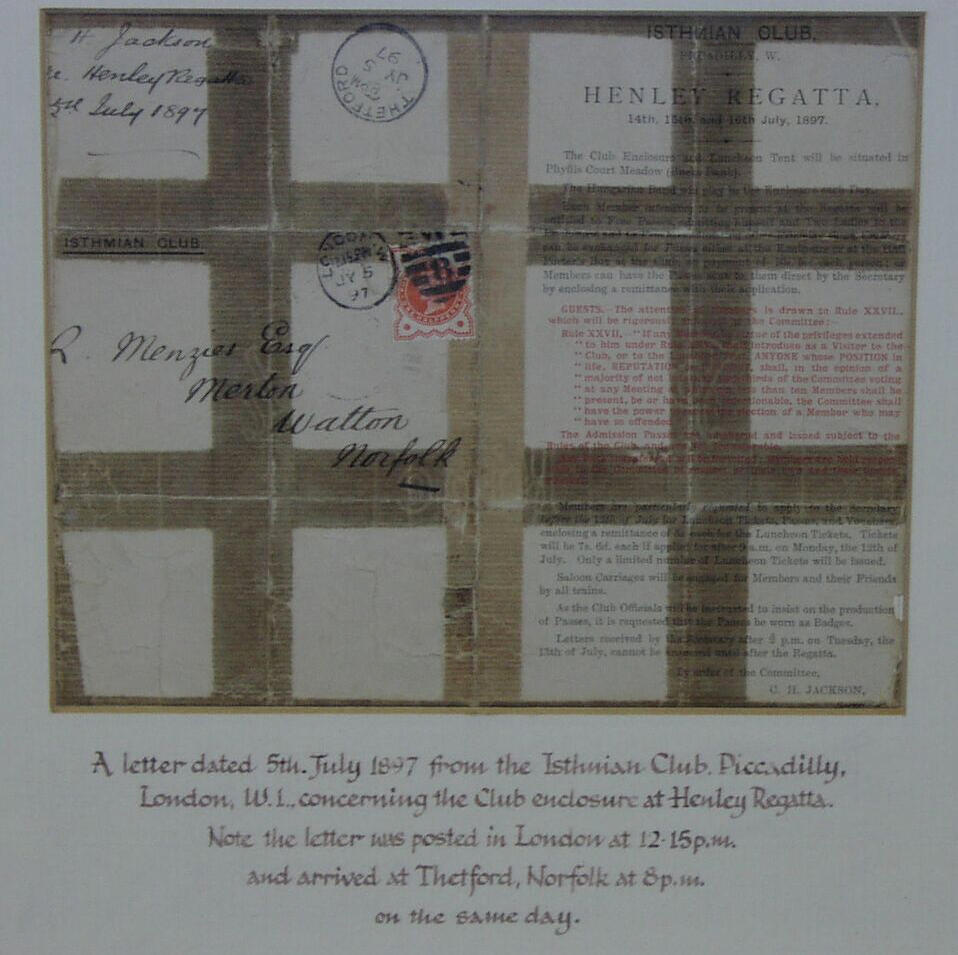 H. Jackson
Henley Regatta
5th July 1897
THETFORD
8 PM
JY 5
97
ISTHMIAN CLUB.
LONDON. W
12.15 PM
JY 5
97
R. Menzies Esq
Merton
Watton
Norfolk
ISTHMIAN CLUB,
PICCADILLY, W.
HENLEY REGATTA,
14th, 15th, and 16th July, 1897.
The Club Enclosure and Luncheon Tent will be situated in
Phyllis Court Meadow (Bucks Bank).
The Hungarian Band will play in the Enclosure each Day.
Each Member intending to be present at the Regatta will be
entitled to Five Passes, admitting Himself and Two Ladies to the
can be exchanged for Passes either at the Enclosure or at the Hall
Members can have the Passes sent to them direct by the Secretary
by enclosing a remittance with their application.
GUESTS.—The attention of Members is drawn to Rule XXVII.,
which will be rigorously by the Committee:—
Rule XXVII.—"If any of the privileges extended
"to him under Rule introduce as a Visitor to the
"Club, or to the ANYONE whose POSITION in
"life, REPUTATION or shall, in the opinion of a
"majority of not thirds of the Committee voting
"at any Meeting at less than ten Members shall be
"present, be or have been objectionable, the Committee shall
"have the power election of a Member who may
"have so offended.
The Admission Passes are numbered and issued subject to the
Rules of the Club, and
Members are particularly requested to apply to the Secretary
before the 12th of July for Luncheon Tickets, Passes, and Vouchers,
enclosing a remittance of 5s. each for the Luncheon Tickets. Tickets
will be 7s. 6d. each if applied for after 9 a.m. on Monday, the 12th of
July. Only a limited number of Luncheon Tickets will be issued.
Saloon Carriages will be engaged for Members and their Friends
by all trains.
As the Club Officials will be instructed to insist on the production
of Passes, it is requested that the Passes be worn as Badges.
Letters received by the Secretary after 2 p.m. on Tuesday, the
13th of July, cannot be answered until after the Regatta.
By order of the Committee,
C. H. JACKSON,
A letter dated 5th. July 1897 from the Isthmian Club. Piccadilly,
London, W.1., concerning the Club enclosure at Henley Regatta.
Note the letter was posted in London at 12·15p.m.
and arrived at Thetford, Norfolk at 8p.m.
on the same day.